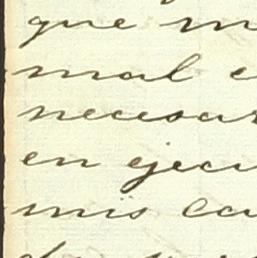 que m
mal e
necesar
en ejecu
mis ca